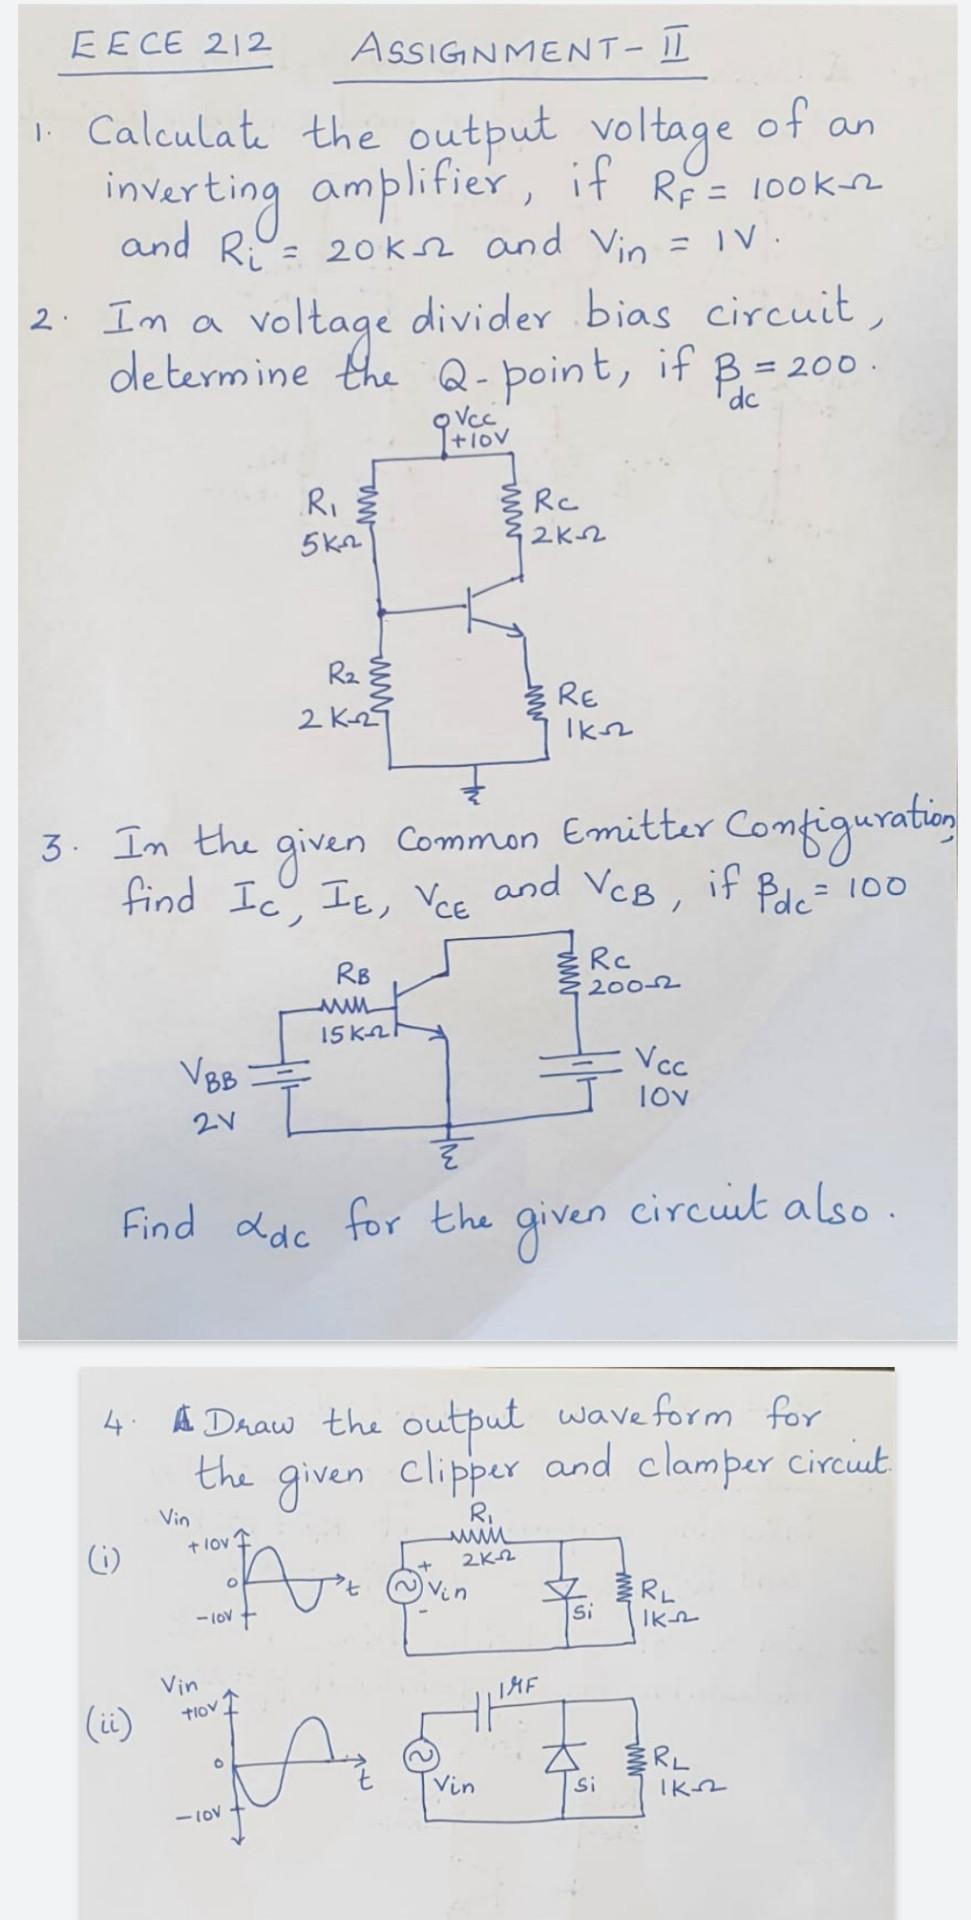 EECE 212 ASSIGNMENT-II
1. Calculate the output voltage of an
inverting amplifier, if RF = 100KΩ
and Ri = 20KΩ and Vin = 1V.
2. In a voltage divider bias circuit,
determine the Q-point, if βdc = 200.
Vcc
+10V
R1
5KΩ
Rc
2KΩ
R2
2KΩ
RE
1KΩ
3. In the given Common Emitter Configuration,
find IC, IE, VCE and VCB, if βdc = 100
RB
15KΩ
Rc
200Ω
VBB
2V
Vcc
10V
Find αdc for the given circuit also.
4. Draw the output waveform for
the given clipper and clamper circuit.
(i)
Vin
+10V
0
-10V
t
R1
2KΩ
+
Vin
-
Si
RL
1KΩ
(ii)
Vin
+10V
0
-10V
t
1μF
Vin
Si
RL
1KΩ